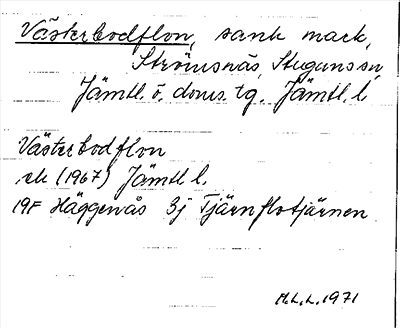 Västerbodflon, sank mark,
Strömsnäs, Stuguns sn,
Jämtl. ö. doms. tg. Jämtl. l
Västerbodflon
ek (1967) Jämtl l.
19F Häggenås 3j Tjärnflotjärnen
H.L.L. 1971